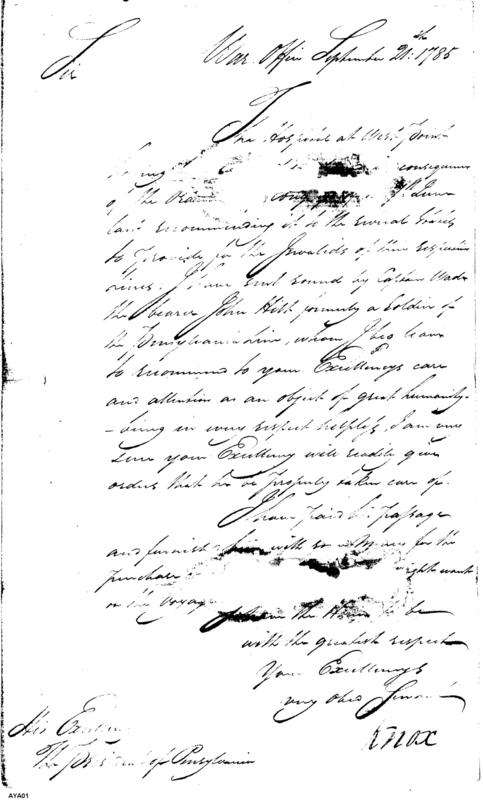 War Office September 21.th 1785
Sir
The Hospital at West Point
consequence
of the 7th June
last recommending it to the several States
to provide for the Invalids of their respective
Lines. I have sent round by Captain Wade
the bearer John Hill formerly a Soldier of
the Pennsylvania Line, whom I beg leave
to recommend to your Excellencys care
and attention as an object of great humanity
- being in every respect helpless. I am very
sure your Excellency will readily give
orders that he be properly taken care of.
I have paid his passage
and furnish him with some Money for the
purchase might want
on the Voyage
I have the Honor to be
with the greatest respect
Your Excellencys
very Obed Servant
Knox
His Excellency
The President of Pensylvania
AYA01